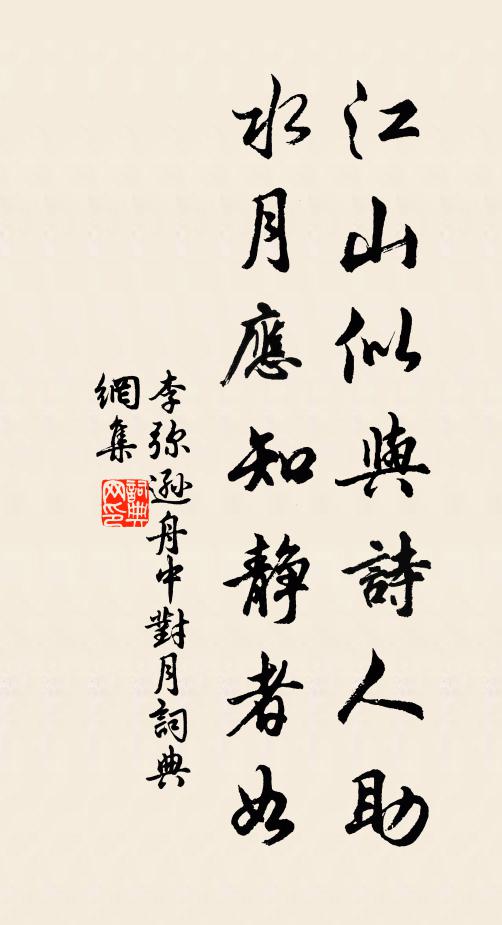 江山似與詩人助
水月應知静者如
李弥遜舟中對月詞典
網集
詞典
网印